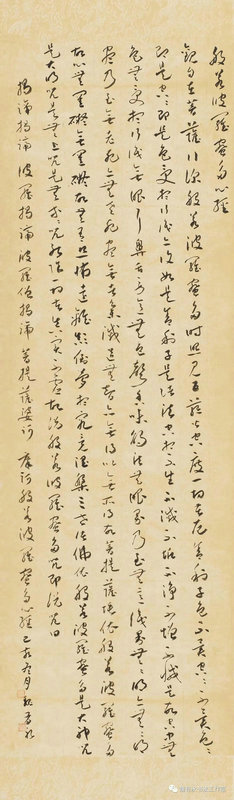 般若波羅蜜多心經
觀自在菩薩行深般若波羅蜜多時照見五蘊皆空度一切苦厄舍利子色不異空空不異色色
即是空空即是色受想行識亦復如是舍利子是諸法空相不生不滅不垢不淨不增不減是故空中無
色無受想行識無眼耳鼻舌身意無色聲香味觸法無眼界乃至無意識界無無明亦無無明
盡乃至無老死亦無老死盡無苦集滅道無智亦無得以無所得故菩提薩埵依般若波羅蜜多
故心無罣礙無罣礙故無有恐怖遠離顛倒夢想究竟涅槃三世諸佛依般若波羅蜜多是大神咒
是大明咒是無上咒是無等等咒能除一切苦真實不虛故說般若波羅蜜多咒即說咒曰
揭諦揭諦波羅揭諦波羅僧揭諦菩提薩婆訶摩訶般若波羅蜜多心經己亥冬月